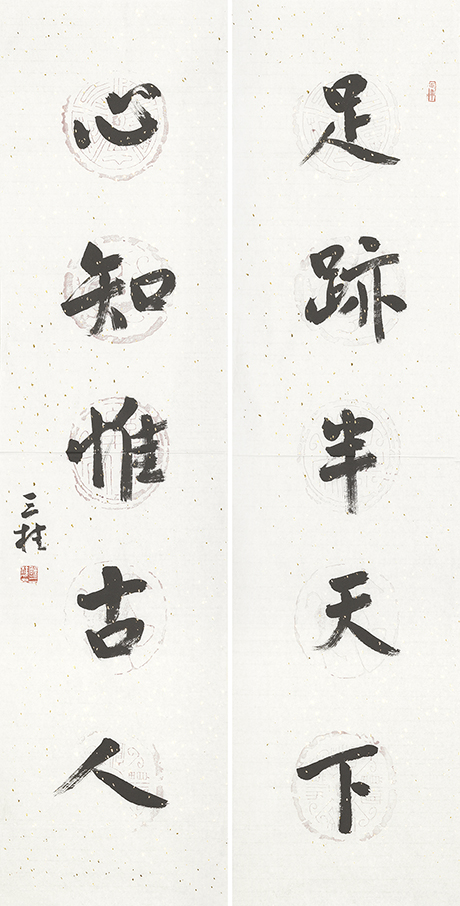 足跡半天下
心知惟古人
三桂